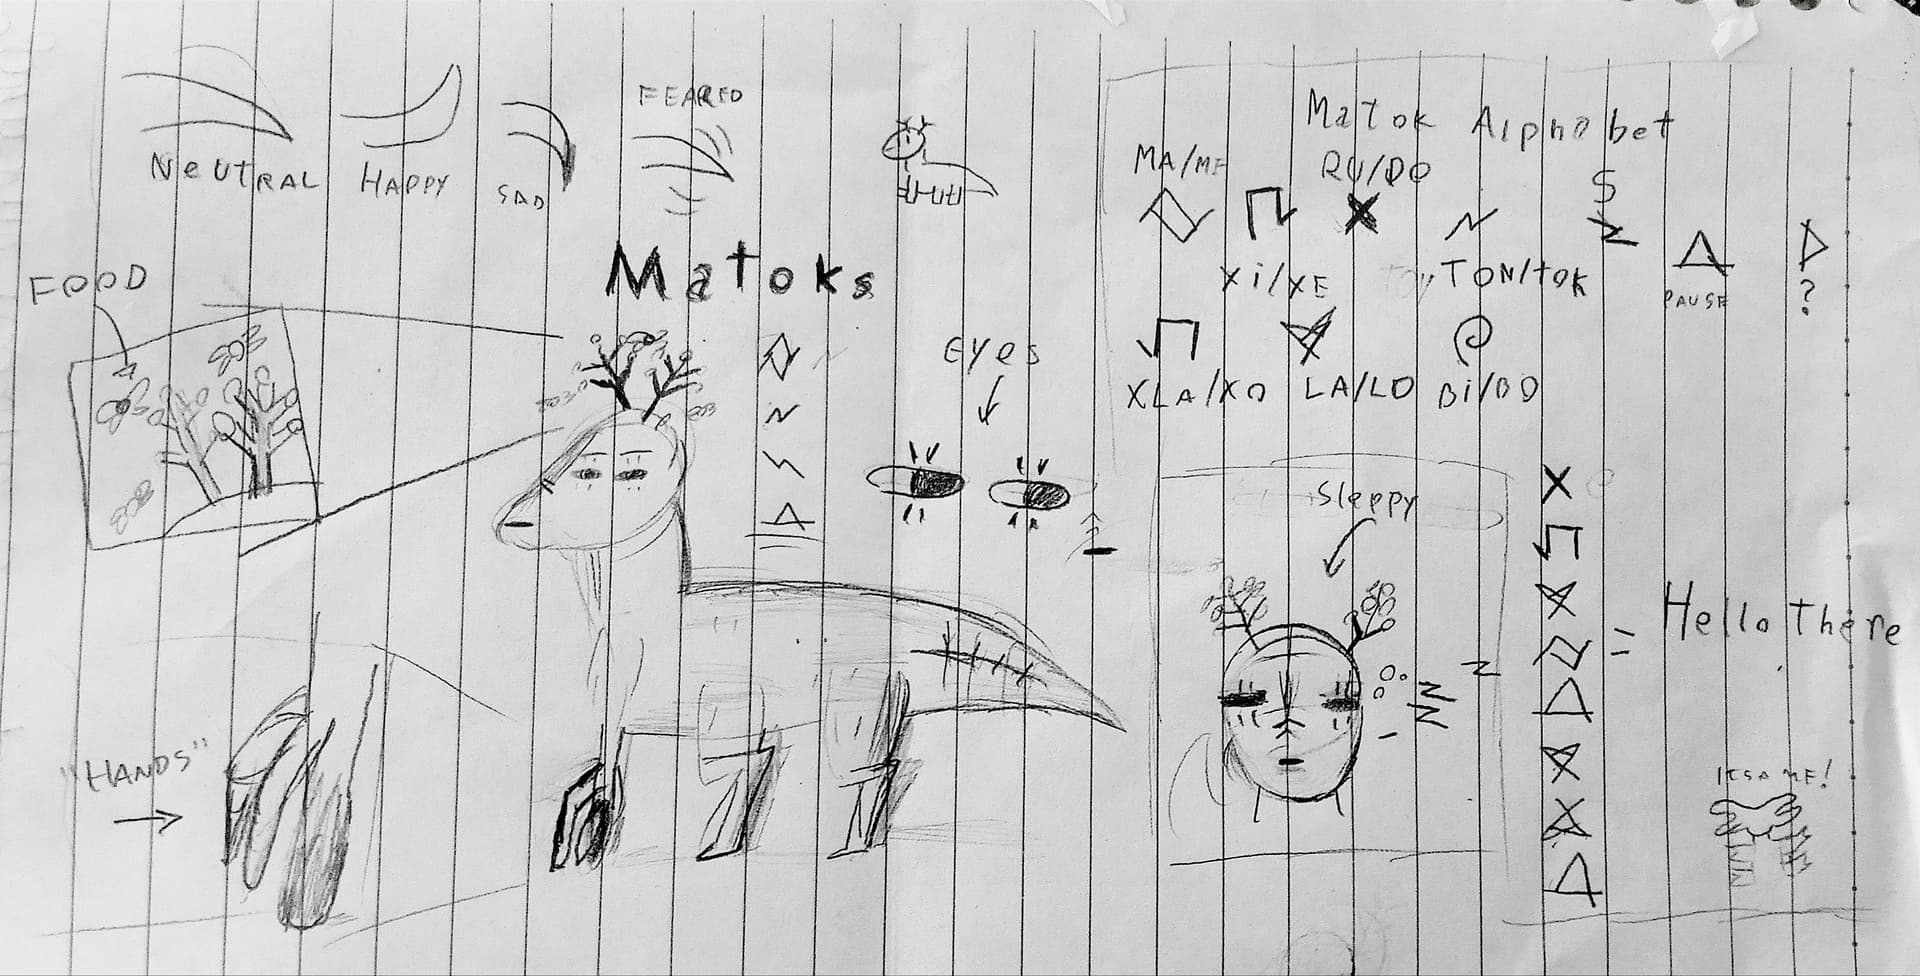 NeUTRAL
HAPPY
SAD
FEARED
FOOD
Matoks
EYes
"HANDS"
Matok Alphabet
MA/ME
RU/DO
S
Xi/XE
TON/TOK
PAUSE
?
XLA/XO
LA/LO
Bi/BO
Sleppy
= Hello There
ITSAME!